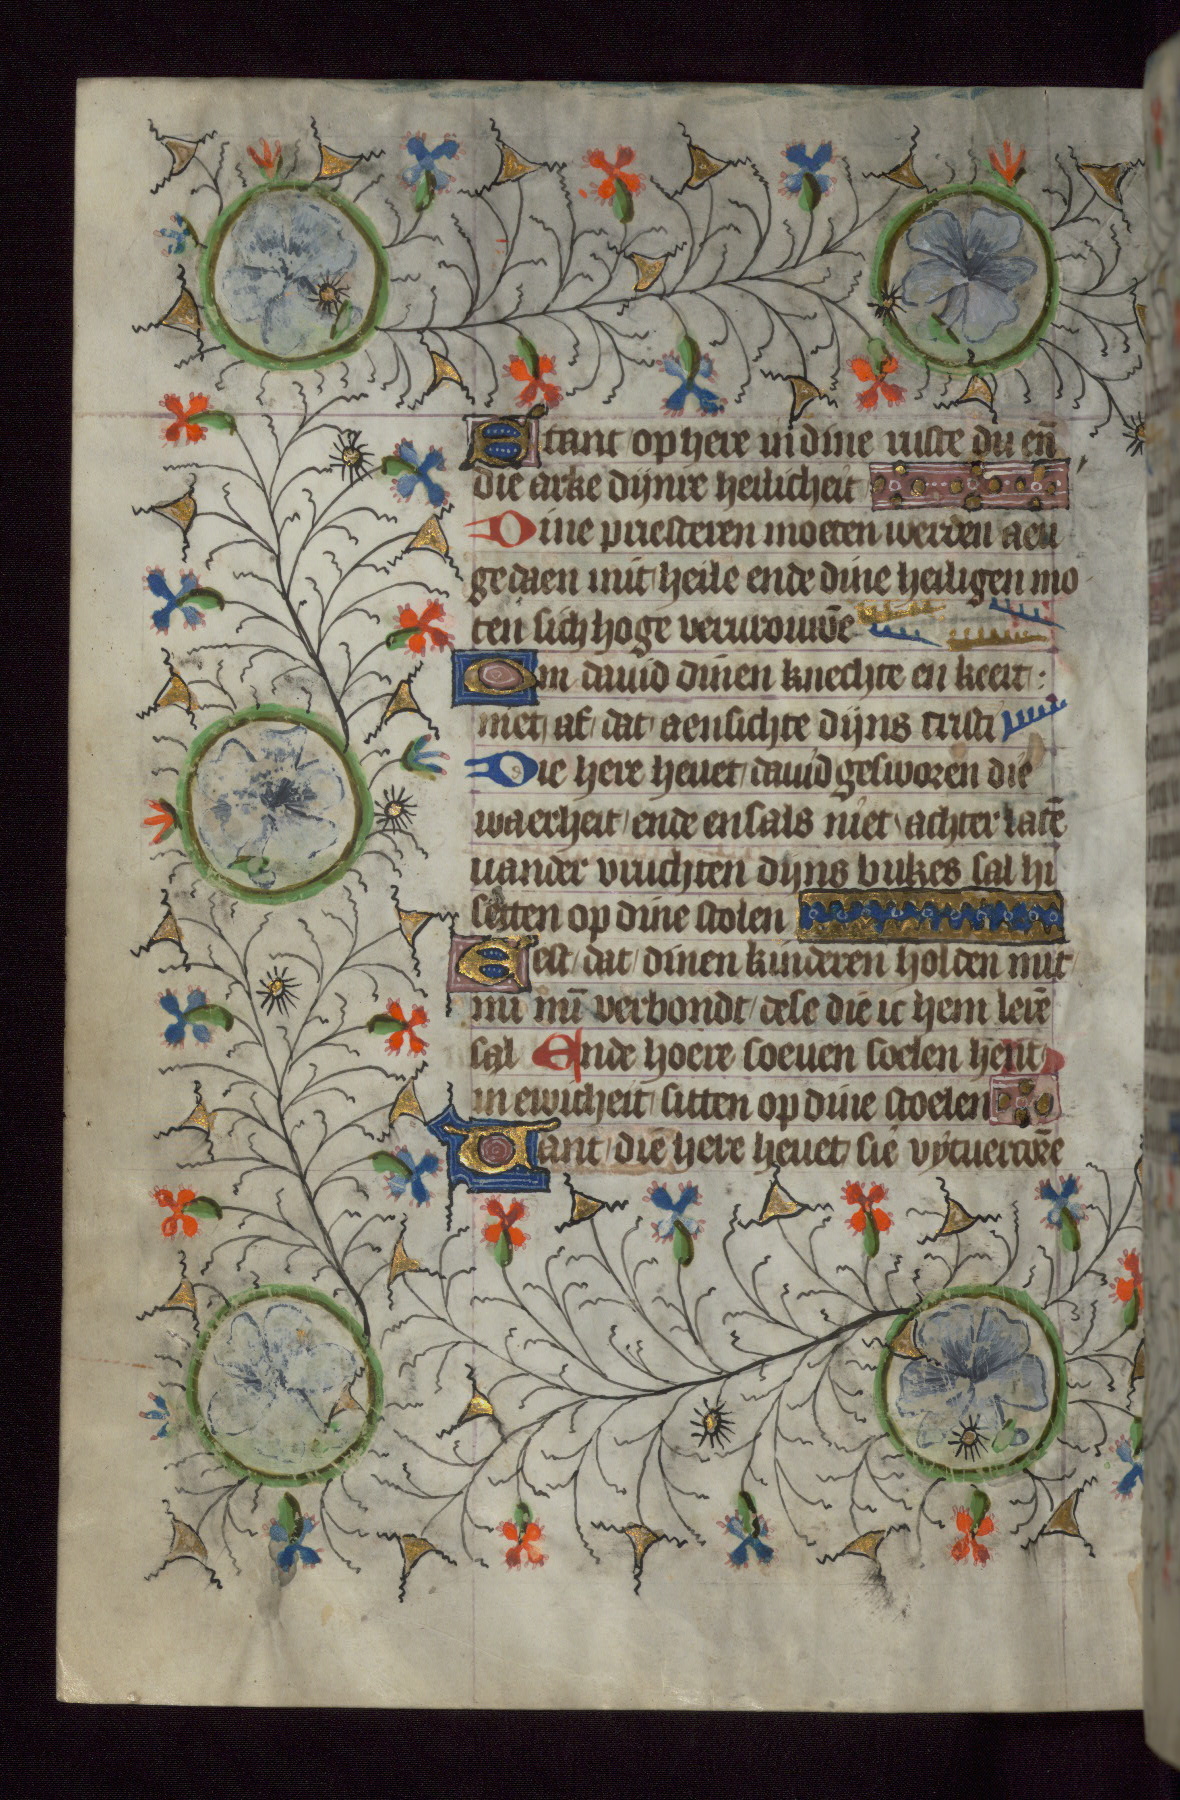 Stant op here in dine ruste du en̄
die arke dijnre heilicheit
Dine priesteren moeten werden aen
gedaen mit heile ende dine heiligen mo
ten sich hoge vervrouwē
Om dauid dinen knechte en keert
niet af dat aensichte dijns cristi
Die here heuet dauid gesworen die
waerheit ende en sals niet achter latē
uander vruchten dijns bukes sal hi
setten op dine stolen
Eest dat dinen kinderen holden mit
mi mī verbondt dese die ic hem lerē
sal Ende hoere soeuen soelen hent
in ewicheit sitten op dine stoelen
Want die here heuet sie vytuercorē